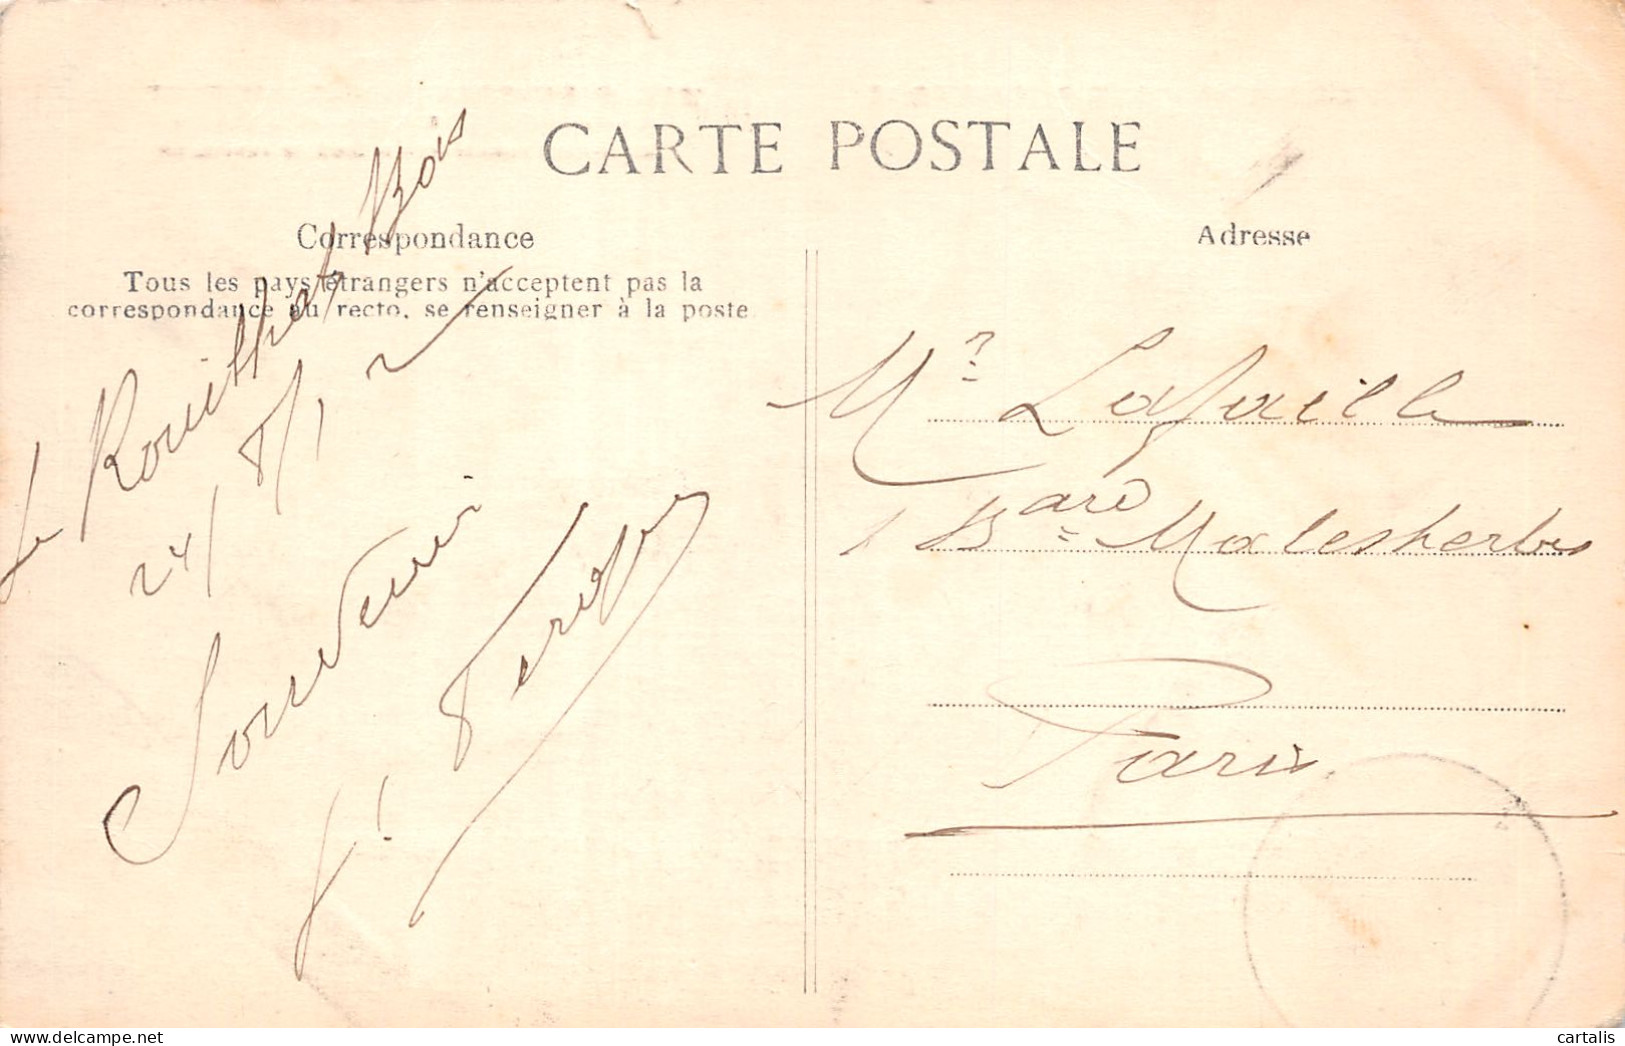 CARTE POSTALE
Correspondance
Tous les pays étrangers n'acceptent pas la
correspondance au recto, se renseigner à la poste
Adresse
Le Bois
24/8/12
Souvenir
Mr Lafaille
1 Bard Malesherbes
Paris
cartalis